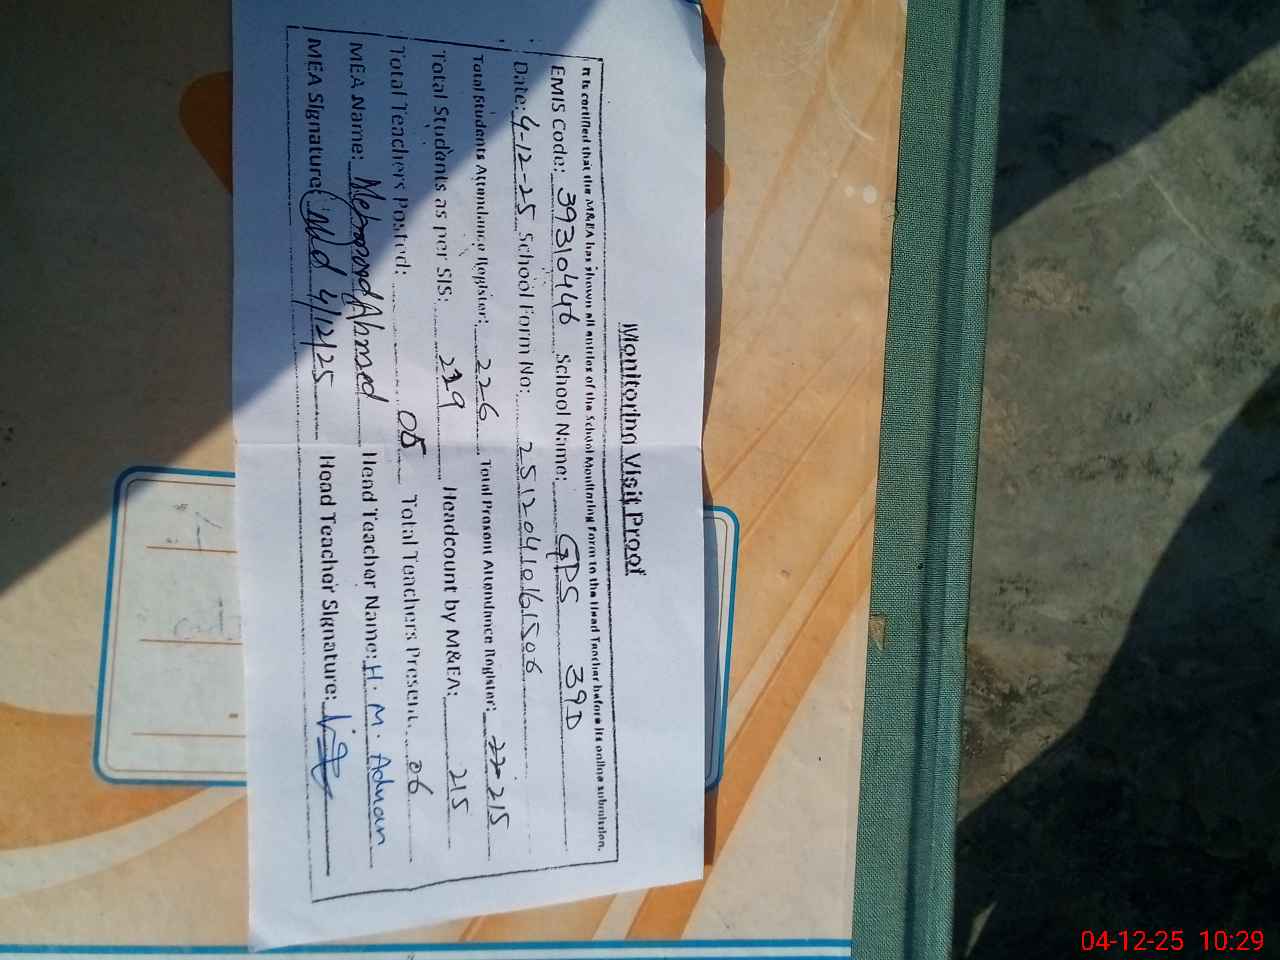 Monitoring Visit Proof
It is certified that the M&EA has shown all entries of the School Monitoring Form to the Head Teacher before its online submission.
EMIS Code: 39310446 School Name: GPS 39D
Date: 4-12-25 School Form No: 2512041061506
Total Students Attendance Register: 226 Total Present Attendance Register: 215
Total Students as per SIS: 229 Headcount by M&EA: 215
Total Teachers Posted: Total Teachers Present: 06
MEA Name: Ahmed Head Teacher Name: H. M. Adnan
MEA Signature: 4/12/25 Head Teacher Signature:
04-12-25 10:29